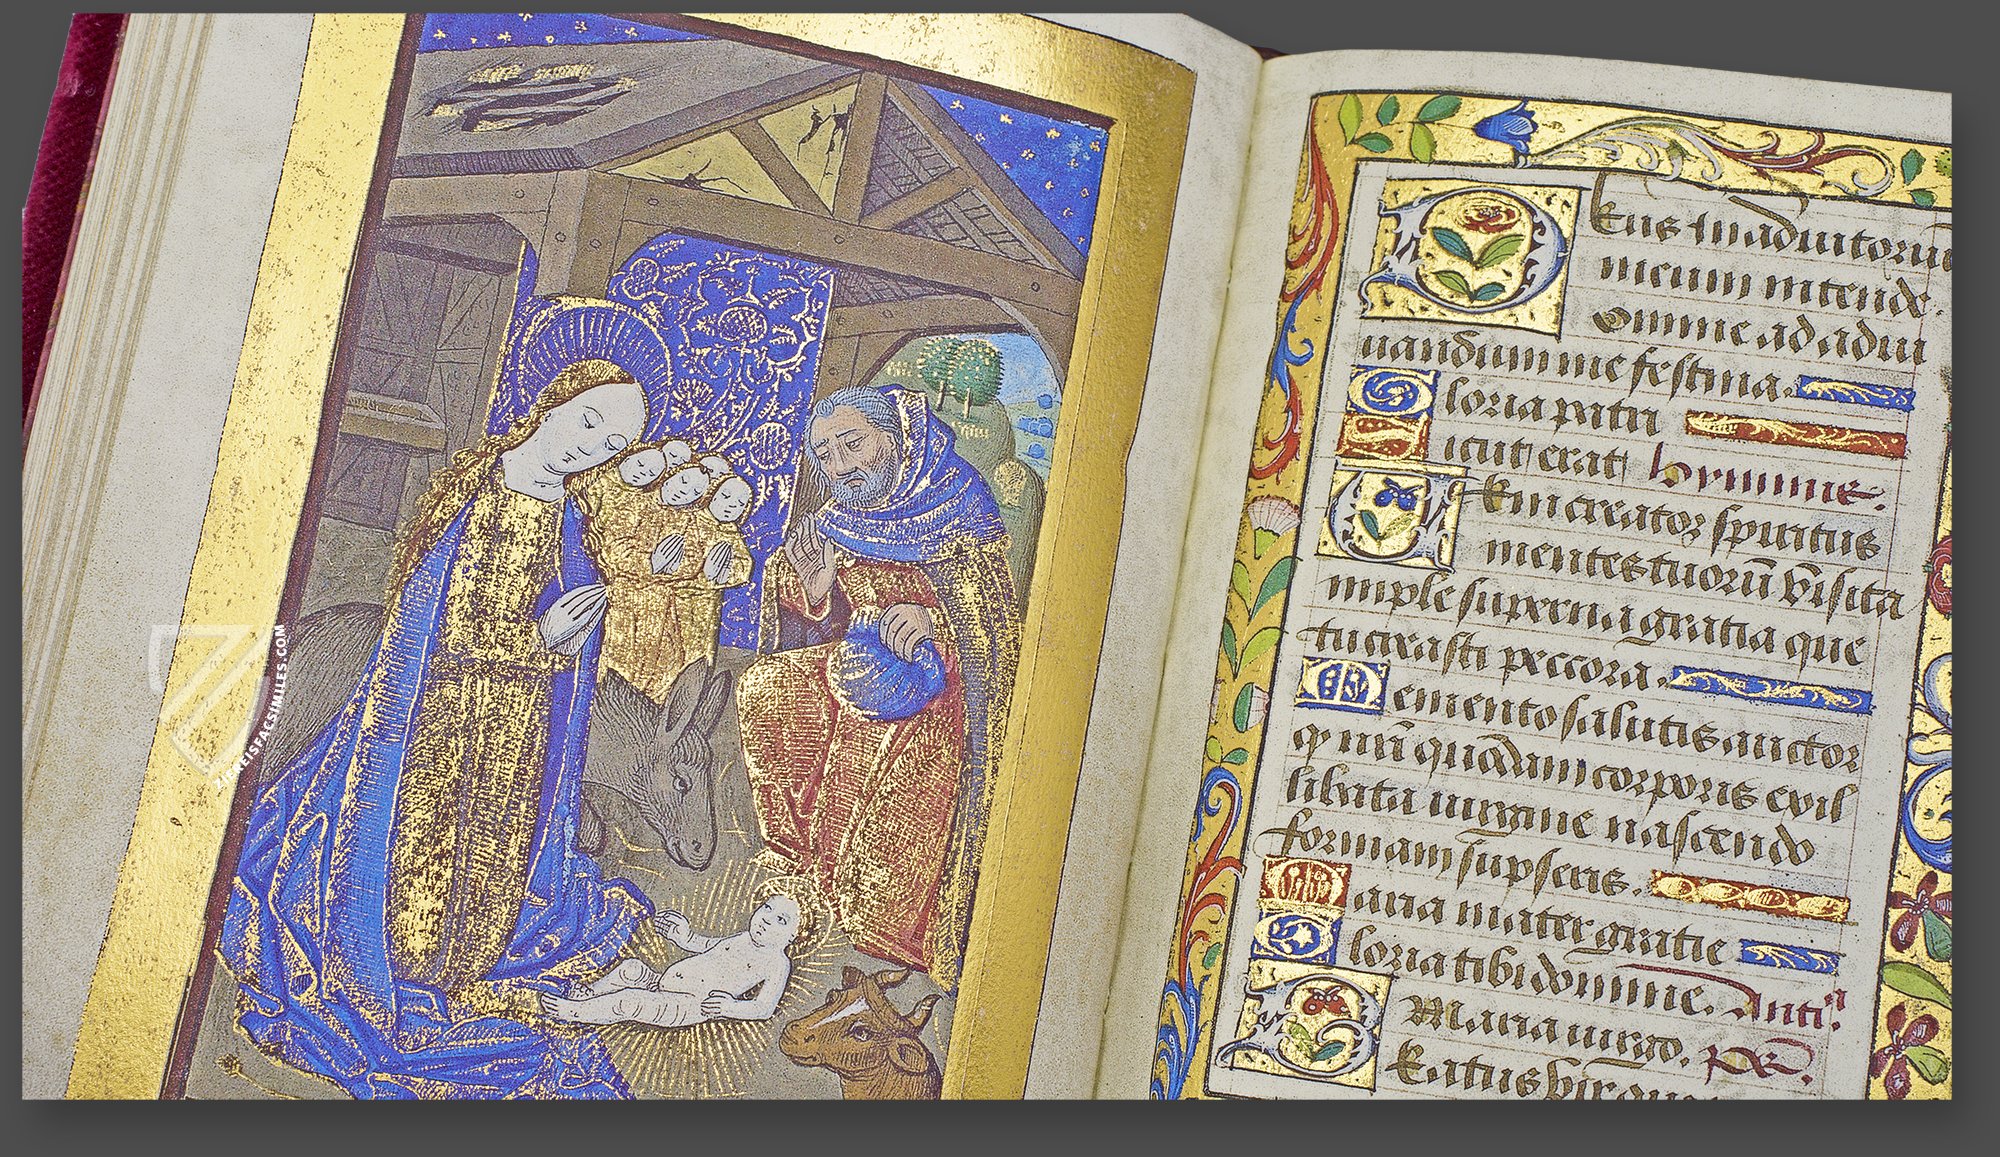 Deus in adiutoriu
meum intende.
Domine ad adiu
uandum me festina.
Gloria patri
Sicut erat hymnne.
Veni creator spiritus
mentes tuorū visita
imple superna gratia que
tu creasti peccora.
Memento salutis auctor
ꝙ nrī quōdam corporis ex il
libata uirgine nascendo
formam sūpseris.
Maria mater gratie
Gloria tibi domine. Antiᵃ.
Maria uirgo. ps.
Beatus vir qui
ZIEREISFACSIMILES.COM